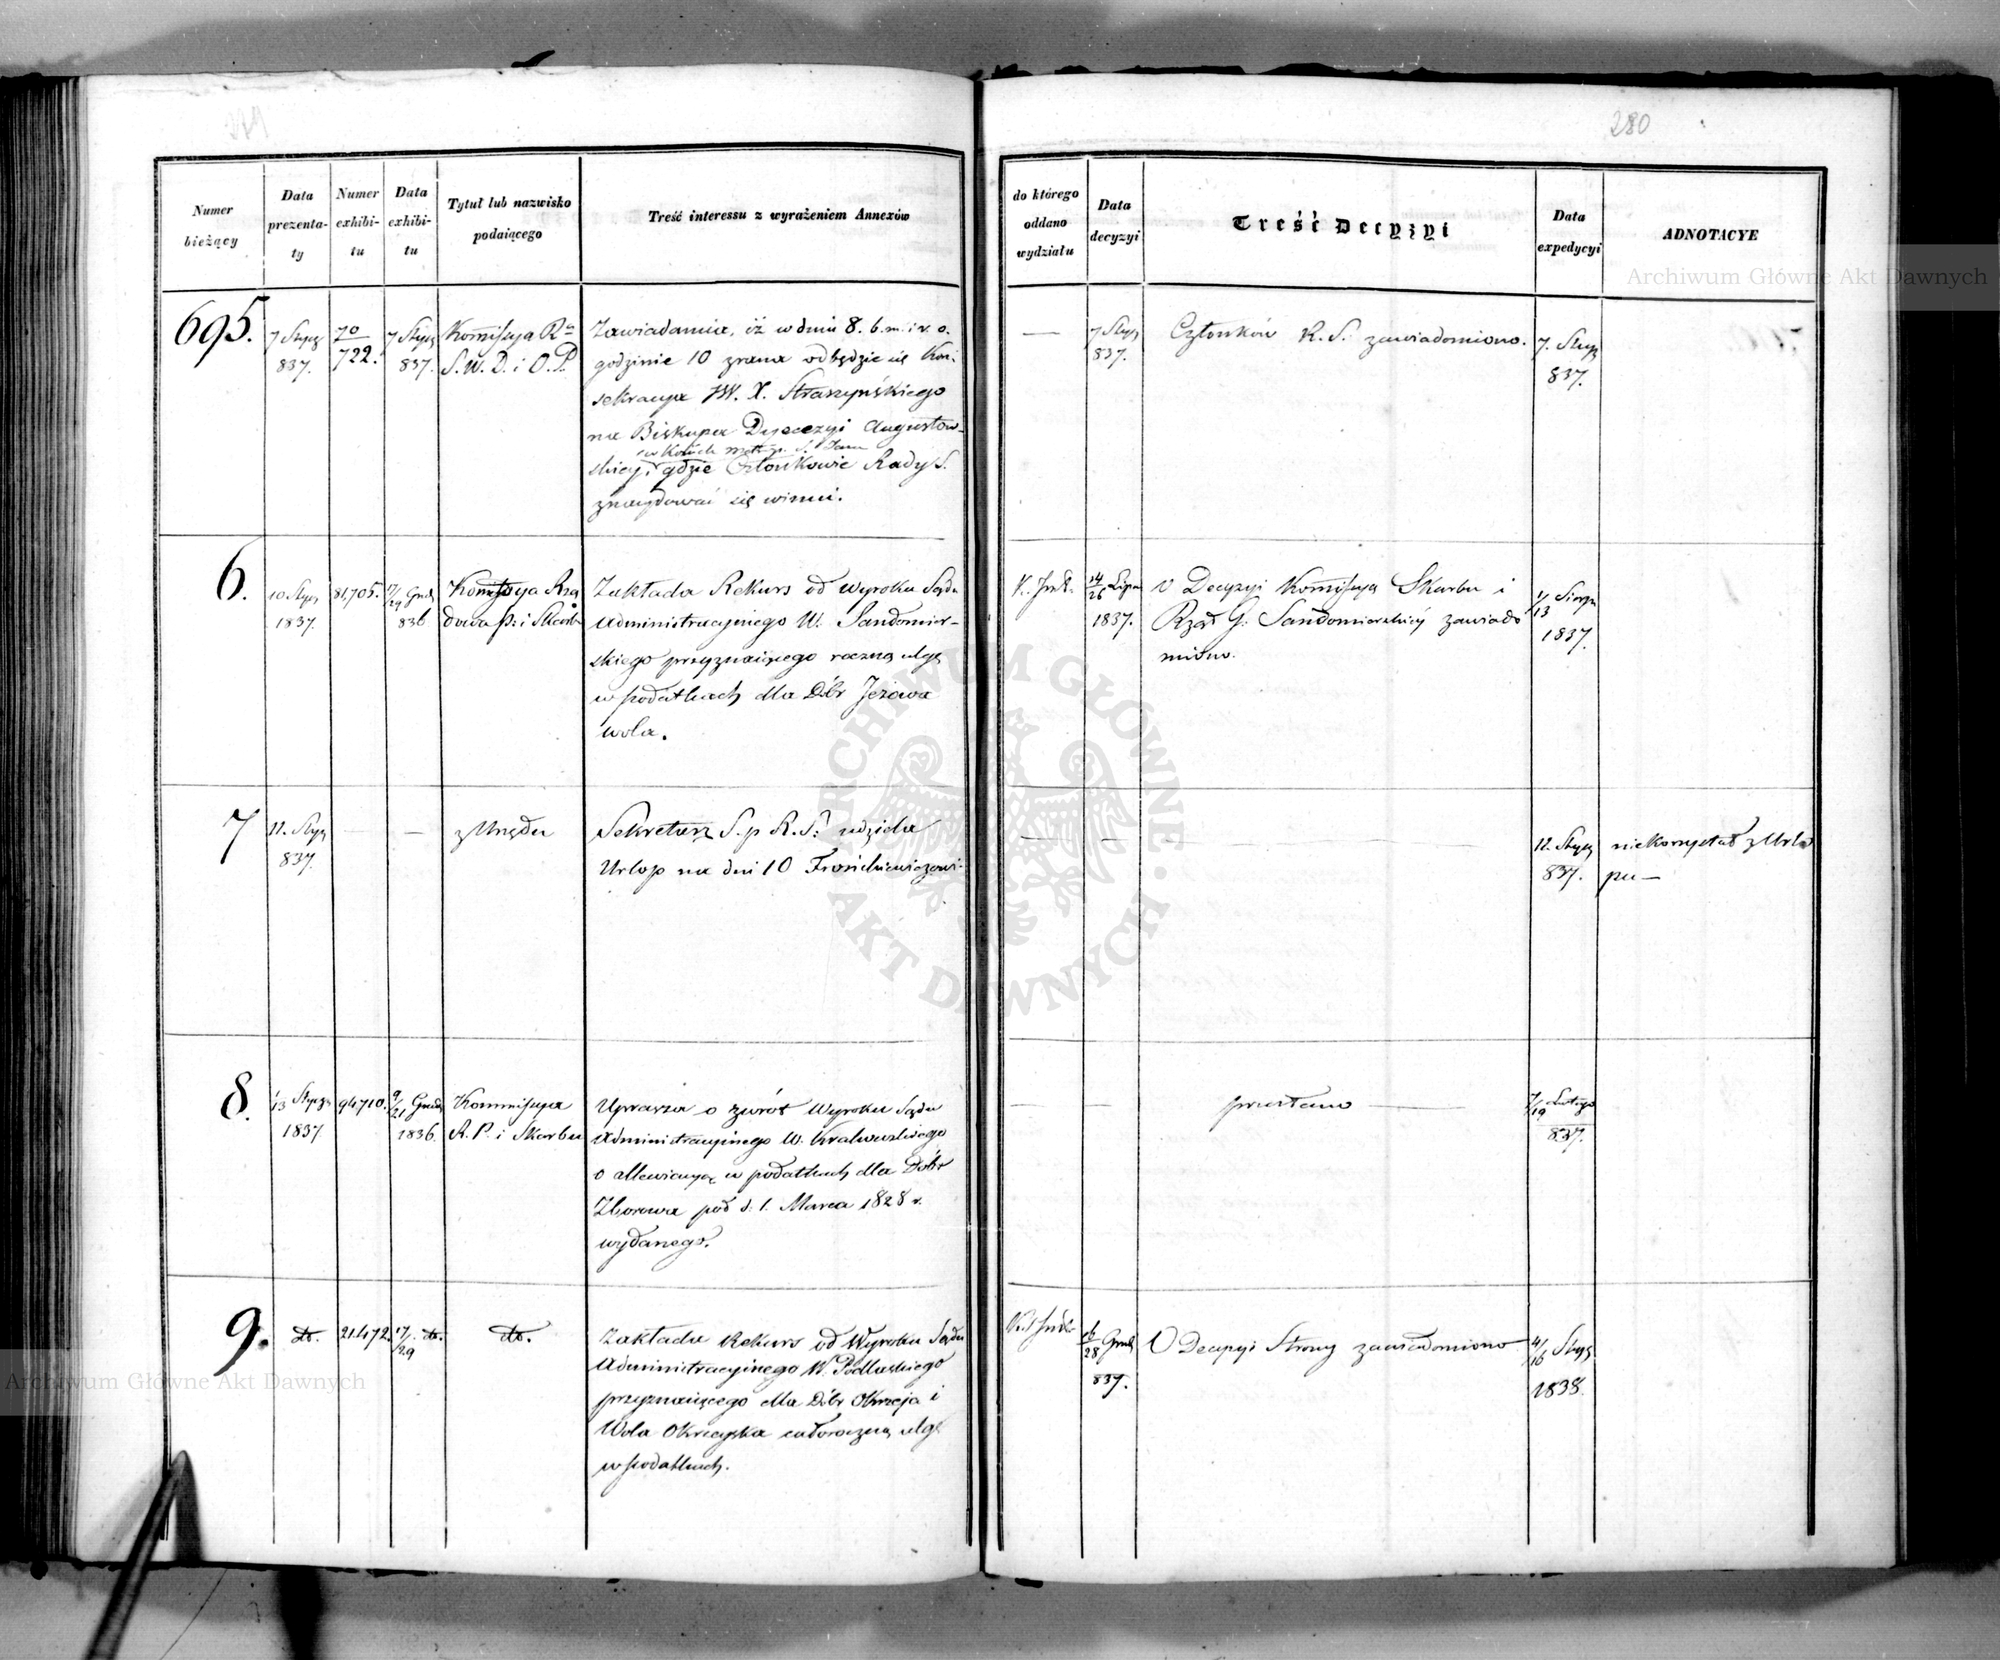 279
280
Numer bieżący
Data prezentaty
Numer exhibitu
Data exhibitu
Tytuł lub nazwisko podaiącego
Treść interessu z wyrażeniem Annexów
do którego oddano wydziału
Data decyzyi
Treść Decyzyi
Data expedycyi
ADNOTACYE
695.
7 Stycz
837.
70
722.
7 Stycz
837.
Kommissya R
S. W. D. i O. P.
Zawiadamia, iż w dniu 8. b. m. i r. o
godzinie 10 zrana odbędzie się Kon-
sekracya JW. X. Straszyńskiego
na Biskupa Dyecezyi Augustow-
w Kościele S. Jana
skiey, gdzie Członkowie Rady S.
znaydować się winni.
—
7 Stycz
837.
Członków R. S. zawiadomiono.
7. Stycz
837.
6.
10 Stycz
1837.
81,705.
17/29 Grud
836
Kommissya Rzą
dowa P. i Skarb
Zakłada Rekurs od Wyroku Sądu
Administracyjnego W. Sandomier-
skiego przyznaiącego roczną ulgę
w podatkach dla Dóbr Jeżowa
wola.
14/26 Lipca
1837.
O Decyzyi Kommissya Skarbu i
Rząd G. Sandomierskiey zawiado
miono.
1/13 Sierp
1837.
7
11. Stycz
837.
—
—
z Urzędu
Sekretarz S. p R. S. udziela
Urlop na dni 10
—
—
—
12. Stycz
837.
nie korzystał z Urlo
pu —
8.
1/13 Stycz
1837
94710.
9/21 Grud
1836.
Kommissya
R. P. i Skarbu
Uprasza o zwrót Wyroku Sądu
Administracyjnego W. Krakowskiego
o allewiacyą w podatkach dla Dóbr
Zborowa pod d. 1. Marca 1828 r.
wydanego.
—
—
przesłano
7/19 Lutego
837.
9.
do.
21472.
17/29 do.
do.
Zakłada Rekurs od Wyroku Sądu
Administracyjnego W. Podlaskiego
przyznaiącego dla Dóbr Okrzeja i
Wola Okrzejska całoroczną ulgę
w podatkach.
16/28 Grud
837.
O Decyzyi Strony zawiadomiono
4/16 Stycz
1838.
Archiwum Główne Akt Dawnych
ARCHIWUM GŁÓWNE AKT DAWNYCH
Archiwum Główne Akt Dawnych